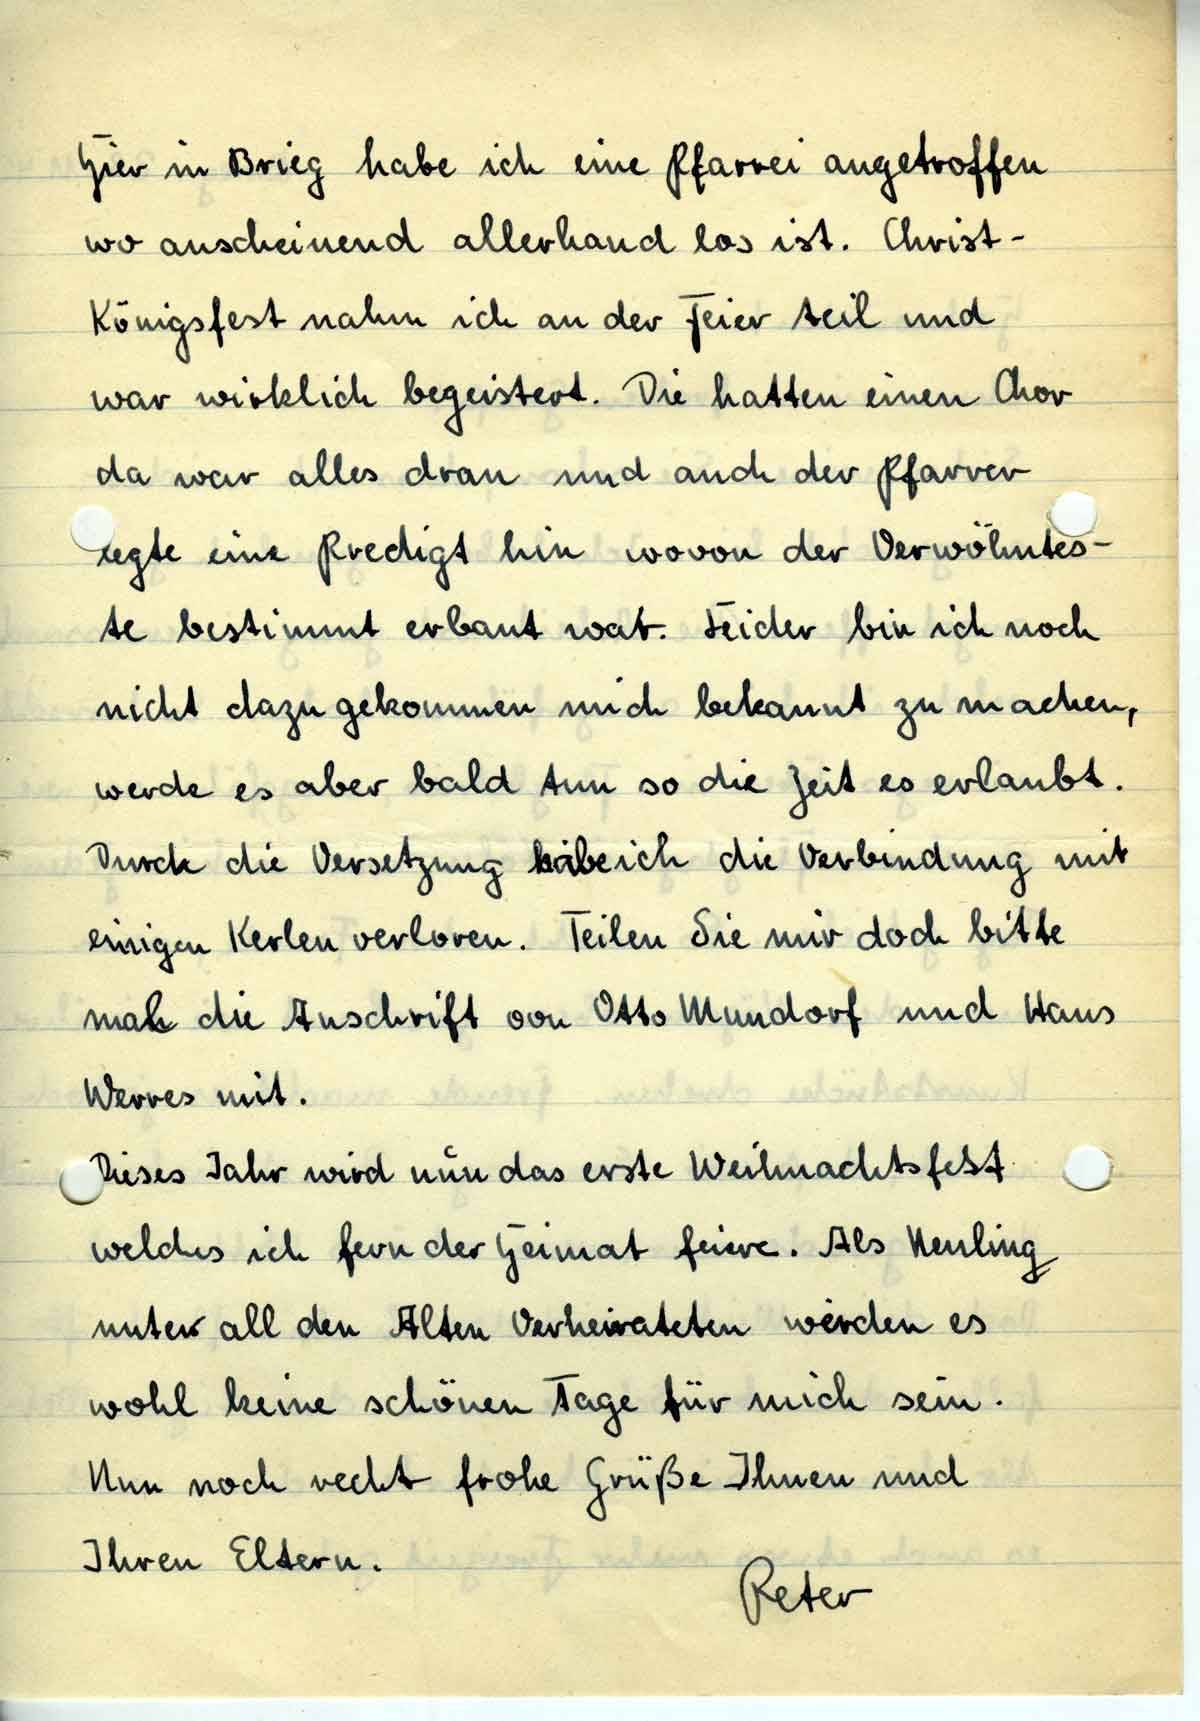 Hier in Brieg habe ich eine Pfarrei angetroffen
wo anscheinend allerhand los ist. Christ-
Königsfest nahm ich an der Feier teil und
war wirklich begeistert. Die hatten einen Chor
da war alles dran und auch der Pfarrer
legte eine Predigt hin wovon der Verwöhntes-
te bestimmt erbaut war. Leider bin ich noch
nicht dazu gekommen mich bekannt zu machen,
werde es aber bald tun so die Zeit es erlaubt.
Durch die Versetzung habe ich die Verbindung mit
einigen Kerlen verloren. Teilen Sie mir doch bitte
mal die Anschrift von Otto Mundorf und Hans
Werres mit.
Dieses Jahr wird nun das erste Weihnachtsfest
welches ich fern der Heimat feiere. Als Neuling
unter all den Alten Verheirateten werden es
wohl keine schönen Tage für mich sein.
Nun noch recht frohe Grüße Ihnen und
Ihren Eltern.
Peter